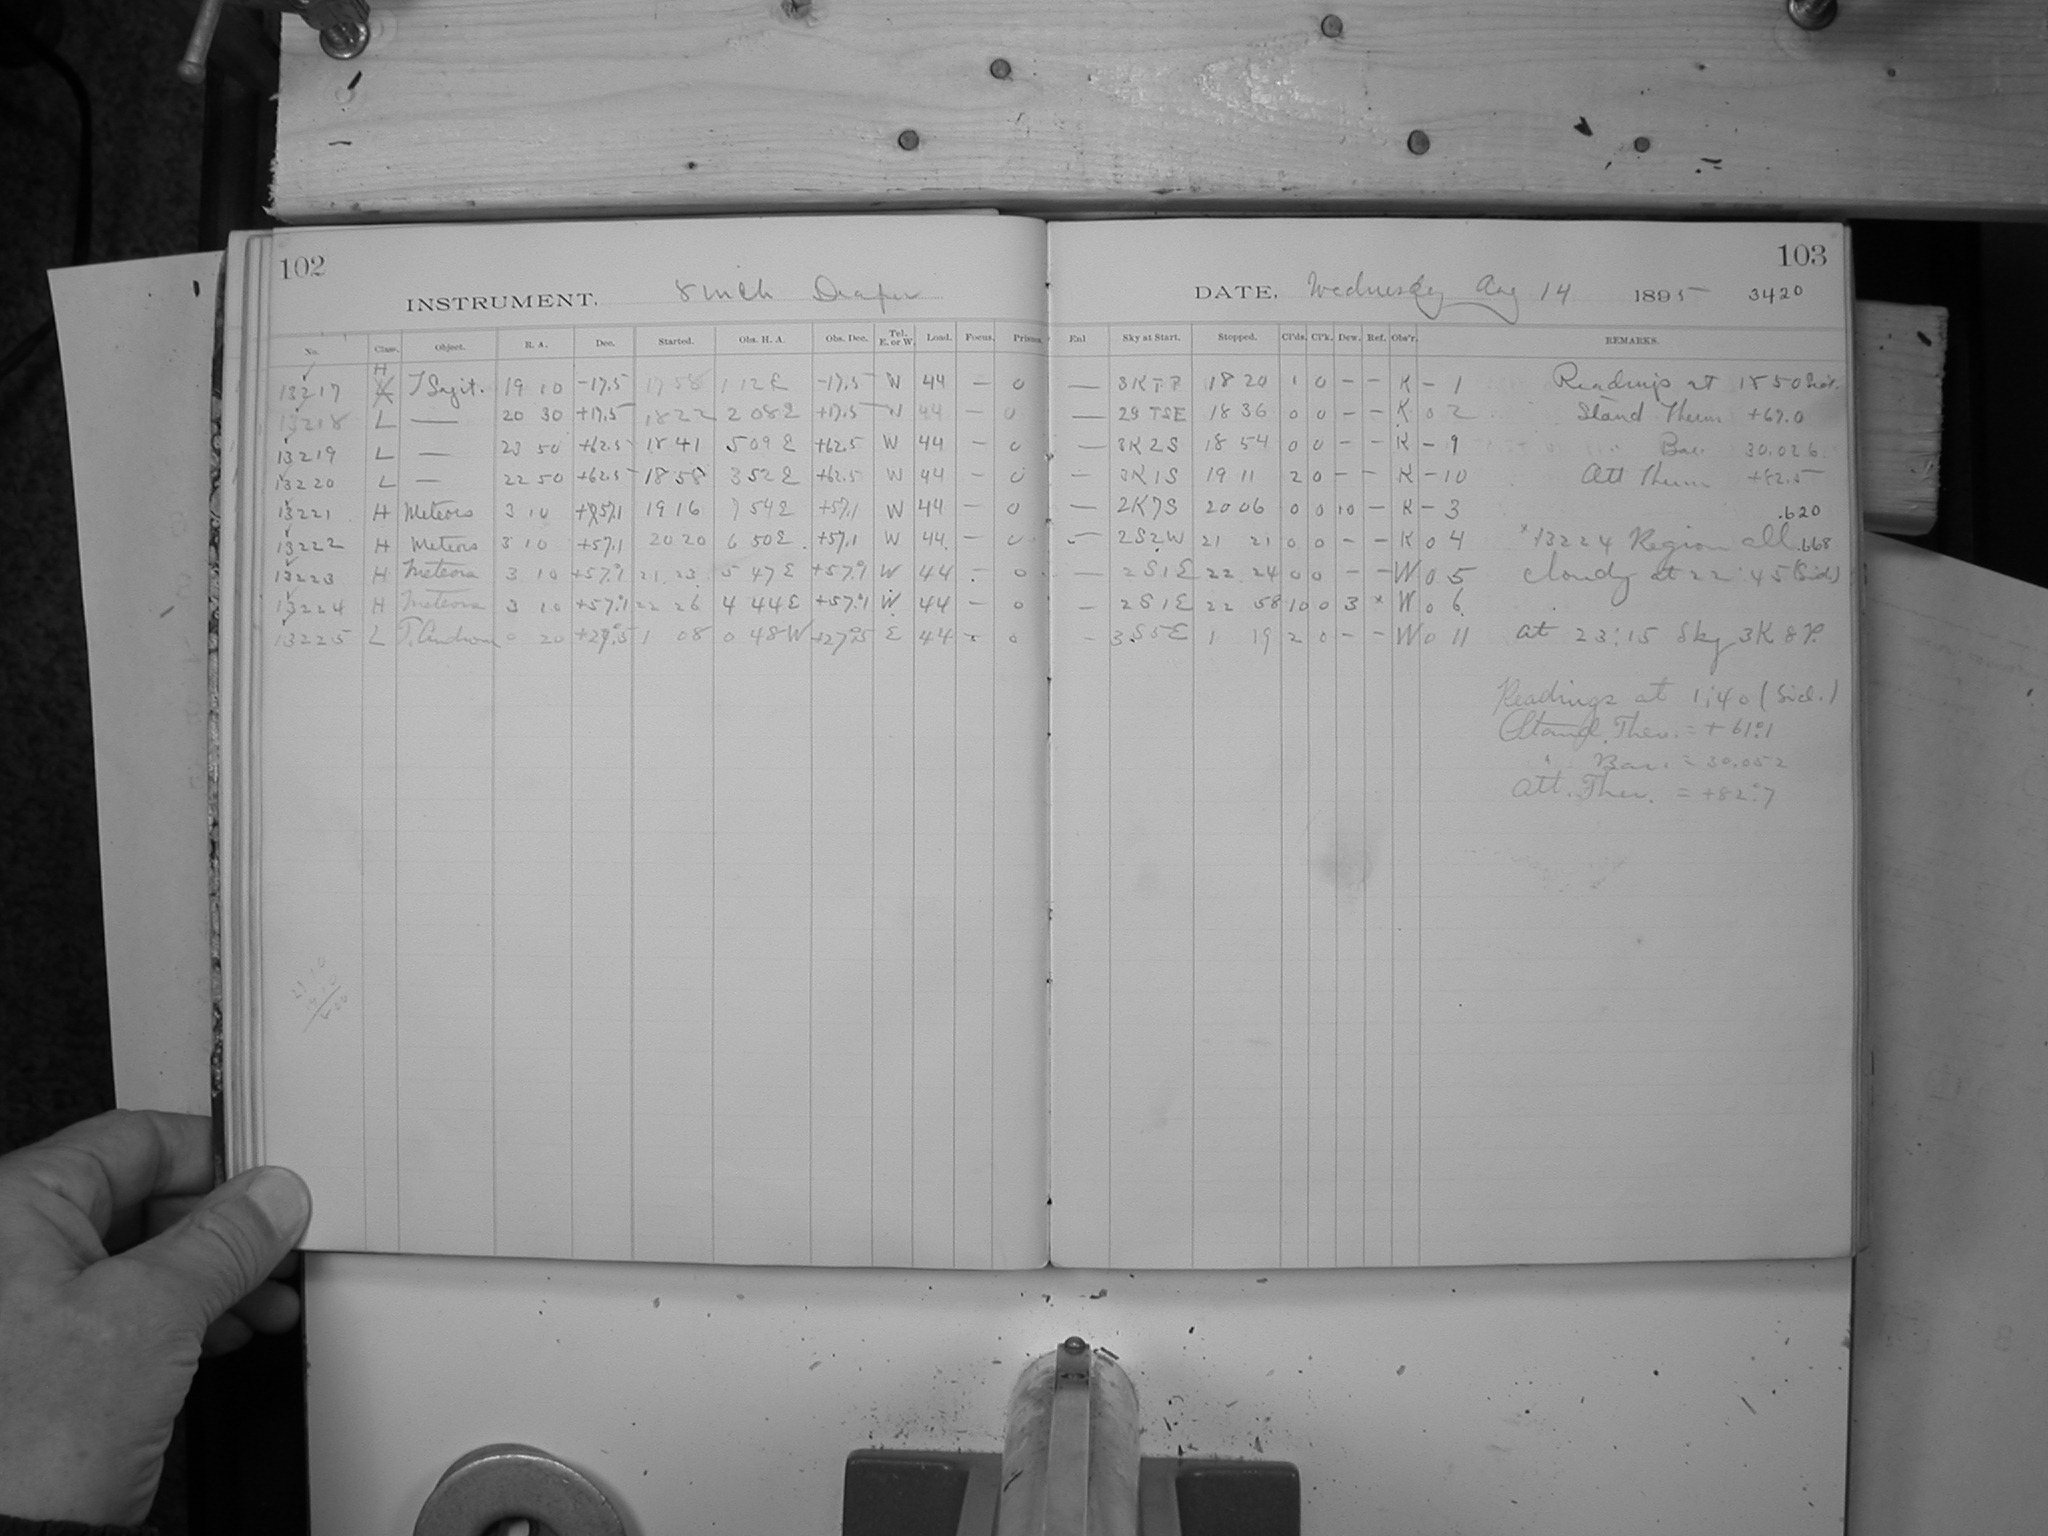 102
INSTRUMENT. 8 inch Draper
No. Class. Object. R. A. Dec. Started. Obs. H. A. Obs. Dec. Tel. E. or W. Load. Focus. Prisms
13217 H T Sagit. 19 10 -17.5 17 58 1 12 E -17.5 W 44 — 0
13218 L — 20 30 +17.5 18 22 2 08 E +17.5 W 44 — 0
13219 L — 23 50 +62.5 18 41 5 09 E +62.5 W 44 — 0
13220 L — 22 50 +62.5 18 58 3 52 E +62.5 W 44 — 0
13221 H Meteors 3 10 +57.1 19 16 7 54 E +57.1 W 44 — 0
13222 H Meteors 3 10 +57.1 20 20 6 50 E +57.1 W 44 — 0
13223 H Meteors 3 10 +57.1 21 23 5 47 E +57.1 W 44 — 0
13224 H Meteors 3 10 +57.1 22 26 4 44 E +57.1 W 44 — 0
13225 L T. Androm 0 20 +27.5 1 08 0 48 W +27.5 E 44 - 0
103
DATE. Wednesday Aug 14 1895 3420
Enl Sky at Start. Stopped. Cl'ds. Cl'k. Dew. Ref. Obs'r. REMARKS.
— 18 20 1 0 — — K — 1 Readings at 18 50 Sid.
— 18 36 0 0 — — K 0 2 Stand Therm +67.0
— 3K2S 18 54 0 0 — — K — 9 " Bar. 30.026
— 3K1S 19 11 2 0 — — K — 10 Att Therm +82.5
— 2K7S 20 06 0 0 10 — K — 3 .620
— 2S2W 21 21 0 0 — — K 0 4 *13224 Region all .668
— 2S1E 22 24 0 0 — — W 0 5 cloudy at 22:45 (Sid.)
— 2S1E 22 58 10 0 3 * W 0 6
— 3S5E 1 19 2 0 — — W 0 11 at 23:15 Sky 3K8P.
Readings at 1:40 (Sid.)
Stand. Ther. = +61.1
" Bar. = 30.052
Att. Ther. = +82.7